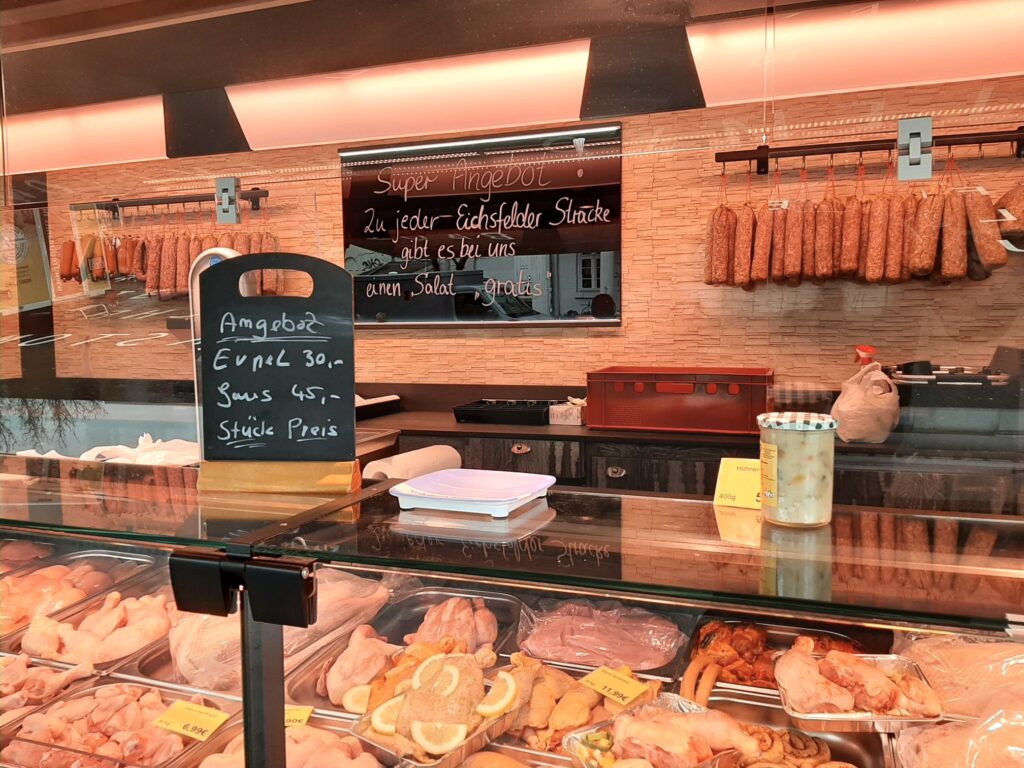 Super Angebot
Zu jeder Eichsfelder Stracke
gibt es bei uns
einen Salat gratis
Angebot
Erpel 30,-
Gans 45,-
Stück Preis
Hühner
400g
6,99€
11,99€